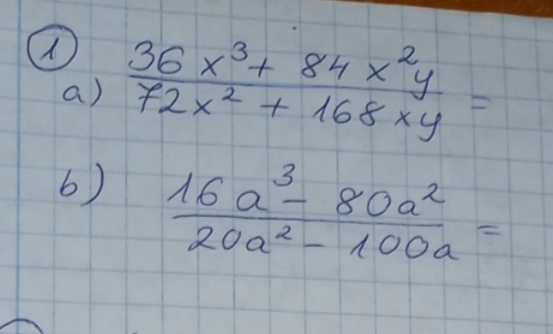 1
a) 36x³ + 84x²y
72x² + 168xy =
b) 16a³ - 80a²
20a² - 100a =